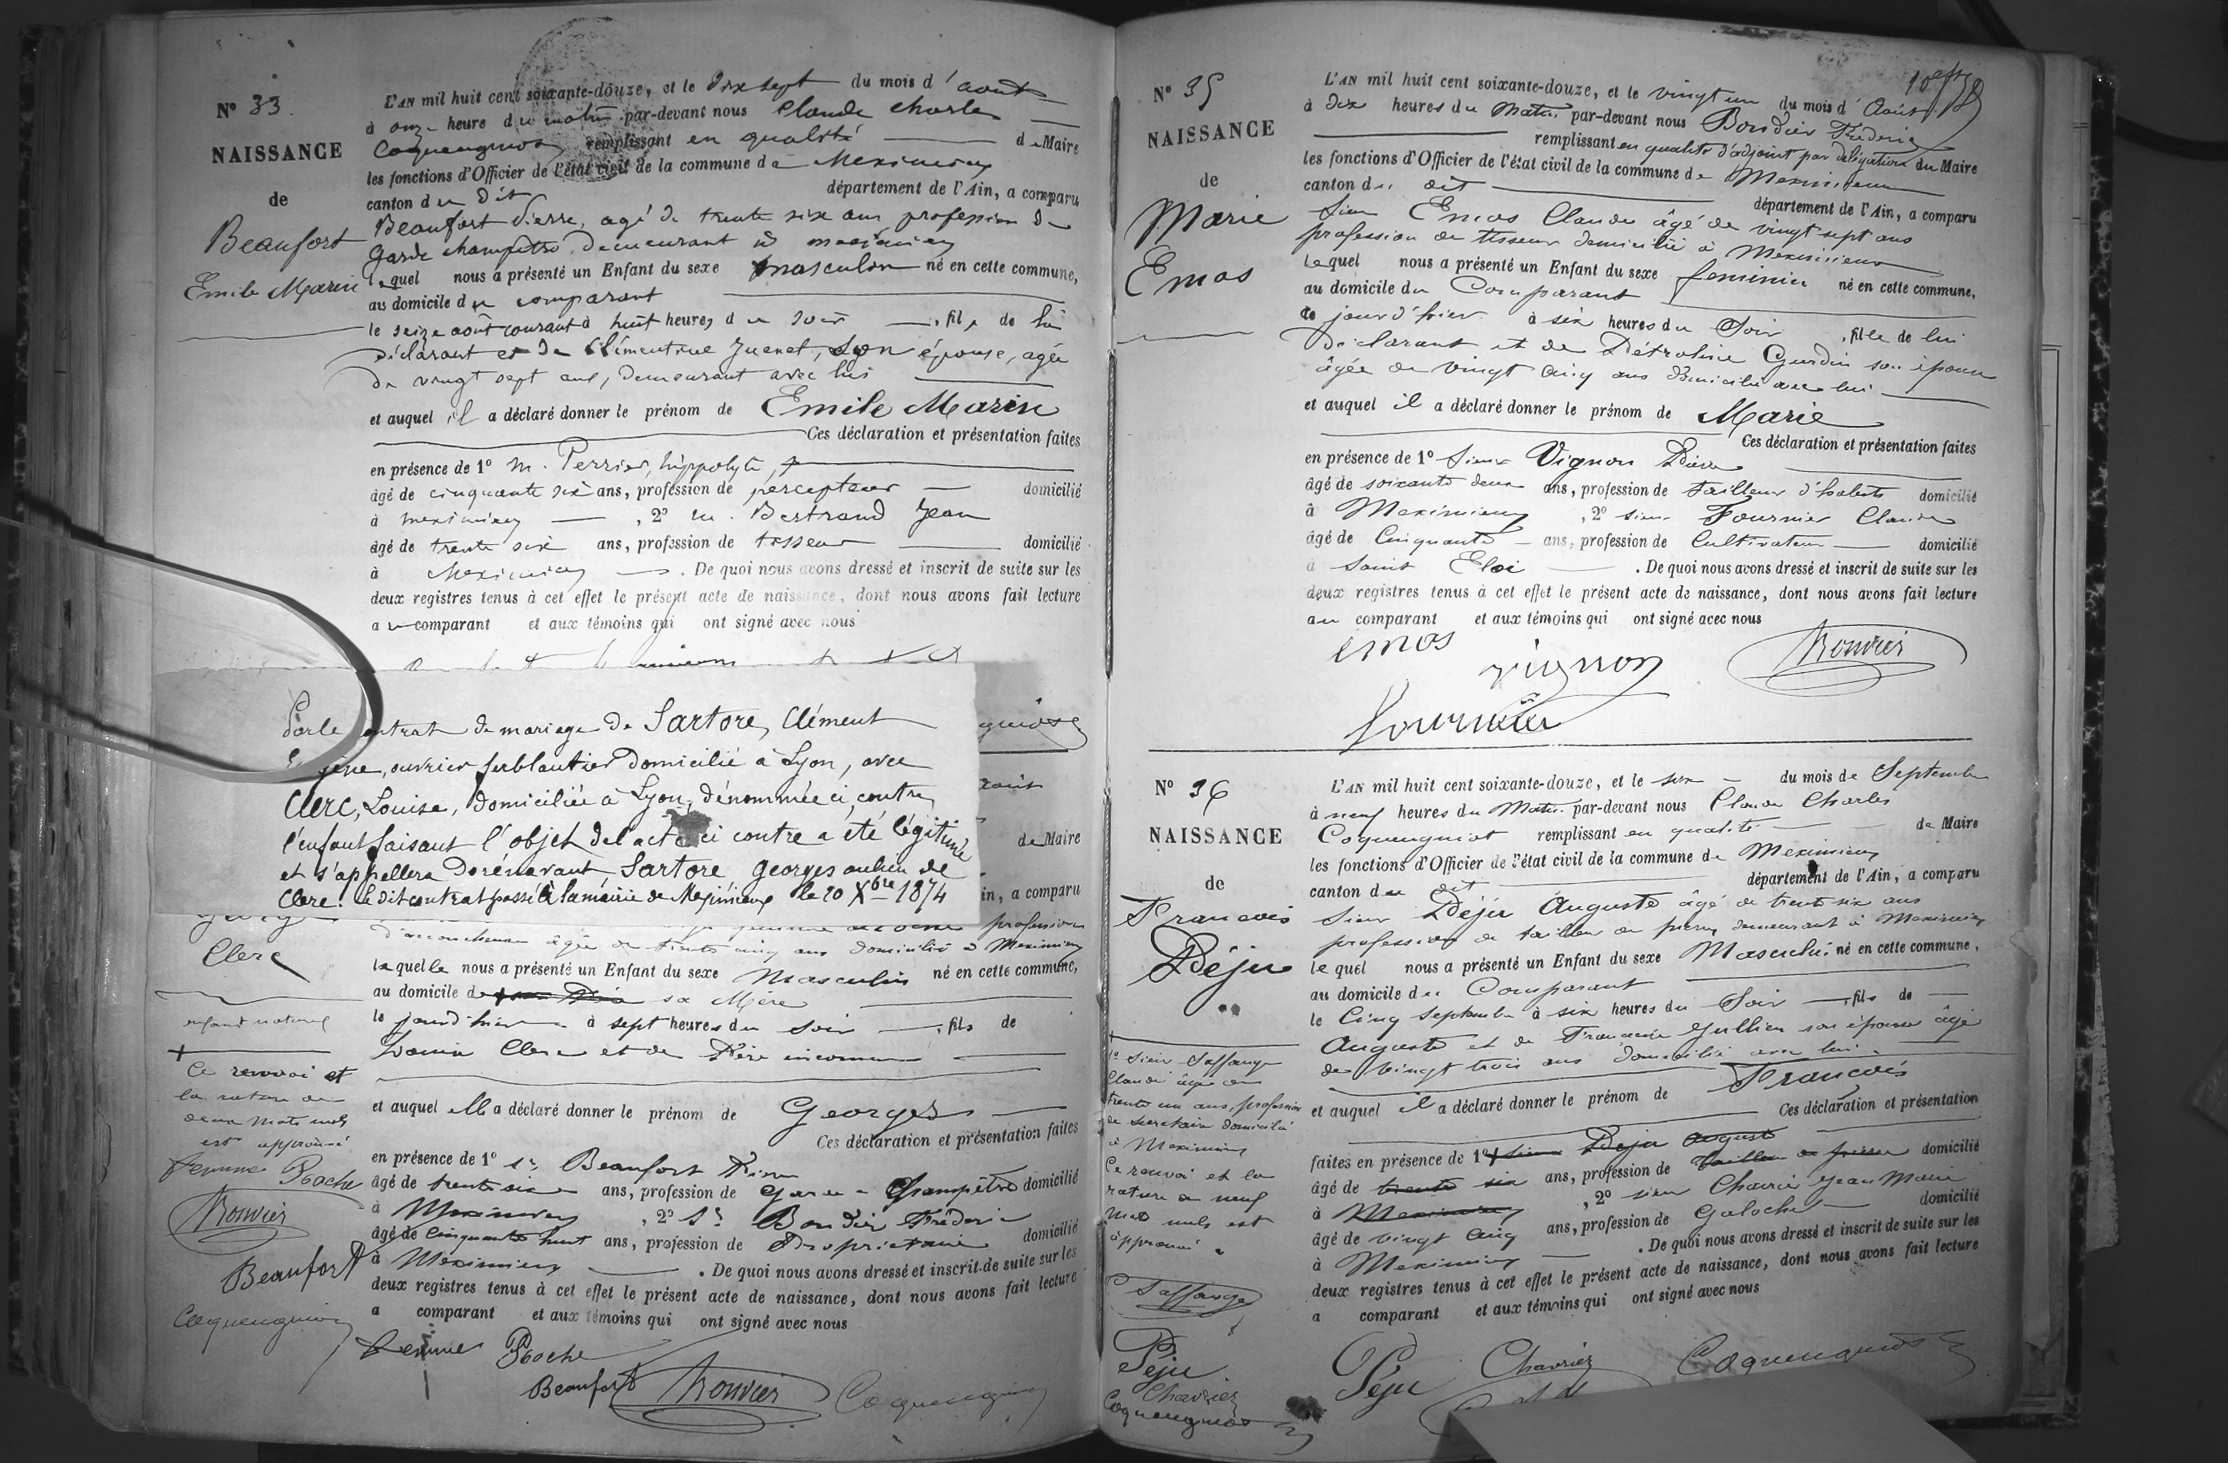 N° 33.
NAISSANCE
de
Beaufort
Emile Marin
L'AN mil huit cent soixante-douze, et le dix sept du mois d'aout
à onze heure du matin par-devant nous Claude Charles
Coqueugniot remplissant en qualité de Maire
les fonctions d'Officier de l'état civil de la commune de Meximieux
canton du dit département de l'Ain, a comparu
Beaufort Pierre, agé de trente six ans profession de
garde champêtre, demeurant à meximieux
lequel nous a présenté un Enfant du sexe masculin né en cette commune,
au domicile du comparant
le seize août courant à huit heures du soir, fils de lui
déclarant et de Clémentine Juenet, son épouse, agée
de vingt sept ans, demeurant avec lui
et auquel il a déclaré donner le prénom de Emile Marin
Ces déclaration et présentation faites
en présence de 1° m. Perrier, hippolyte,
âgé de cinquante six ans, profession de percepteur domicilié
à meximieux, 2° m. Bertrand Jean
âgé de trente six ans, profession de tisseur domicilié
à Meximieux. De quoi nous avons dressé et inscrit de suite sur les
deux registres tenus à cet effet le présent acte de naissance, dont nous avons fait lecture
au comparant et aux témoins qui ont signé avec nous
Par le contrat de mariage de Sartore, Clément
Eugène, ouvrier ferblantier domicilié à Lyon, avec
Clerc, Louise, domiciliée à Lyon, dénommée ci contre,
l'enfant faisant l'objet de l'acte ci contre a été légitimé
et s'appellera Dorénavant Sartore Georges au lieu de
Clerc. Le dit contrat passé à la mairie de Meximieux le 20 Xbre 1874
de Maire
in, a comparu
Clerc
enfant naturel
profession
d'accoucheuse âgée de trente cinq ans domiciliée à Meximieux
laquelle nous a présenté un Enfant du sexe Masculin né en cette commune,
au domicile de sa Mère
le jour d'hier à sept heures du soir, fils de
Louise Clerc et de Père inconnu
et auquel elle a déclaré donner le prénom de Georges
Ces déclaration et présentation faites
en présence de 1° Sr Beaufort Pierre
âgé de trente six ans, profession de Garde Champêtre domicilié
à Meximieux, 2° Sr Bouvier Fréderic
âgé de cinquante huit ans, profession de Propriétaire domicilié
à Meximieux. De quoi nous avons dressé et inscrit de suite sur les
deux registres tenus à cet effet le présent acte de naissance, dont nous avons fait lecture
a comparant et aux témoins qui ont signé avec nous
+
Ce renvoi et
la rature de
deux mots nuls
est approuvé
femme Roche
Bouvier
Beaufort
Coqueugniot
femme Roche
Beaufort Bouvier Coqueugniot
N° 35
NAISSANCE
de
Marie
Emos
L'AN mil huit cent soixante-douze, et le vingt un du mois d'Août
à dix heures du Matin par-devant nous Bouvier Fréderic
remplissant en qualité d'adjoint par délégation du Maire
les fonctions d'Officier de l'état civil de la commune de Meximieux
canton du dit département de l'Ain, a comparu
Sieur Emos Claude âgé de vingt sept ans
profession de tisseur domicilié à Meximieux
lequel nous a présenté un Enfant du sexe feminin né en cette commune,
au domicile du Comparant
le jour d'hier à six heures du Soir, fille de lui
Déclarant et de Pétroline Gurdin son épouse
âgée de vingt cinq ans domicilié avec lui
et auquel il a déclaré donner le prénom de Marie
Ces déclaration et présentation faites
en présence de 1° Sieur Vignon Pierre
âgé de soixante deux ans, profession de tailleur d'habits domicilié
à Meximieux, 2° sieur Fournier Claude
âgé de Cinquante ans, profession de Cultivateur domicilié
à Saint Eloi. De quoi nous avons dressé et inscrit de suite sur les
deux registres tenus à cet effet le présent acte de naissance, dont nous avons fait lecture
au comparant et aux témoins qui ont signé avec nous
emos
vignon
Bouvier
fournier
N° 36
NAISSANCE
de
François
Péju
L'AN mil huit cent soixante-douze, et le six du mois de Septembre
à neuf heures du Matin par-devant nous Claude Charles
Coqueugniot remplissant en qualité de Maire
les fonctions d'Officier de l'état civil de la commune de Meximieux
canton du dit département de l'Ain, a comparu
Sieur Péju Auguste âgé de trente six ans
profession de tailleur de pierre demeurant à Meximieux
lequel nous a présenté un Enfant du sexe Masculin né en cette commune,
au domicile du Comparant
le Cinq Septembre à six heures du Soir, fils de
Auguste et de Francoise Jullien son épouse âgée
de vingt trois ans domicilié avec lui
et auquel il a déclaré donner le prénom de François
Ces déclaration et présentation
faites en présence de 1° + sieur Peju auguste
âgé de trente six ans, profession de tailleur de pierre domicilié
à Meximieux, 2° sieur Chavrier Jean Marie
âgé de vingt cinq ans, profession de Galochet domicilié
à Meximieux. De quoi nous avons dressé et inscrit de suite sur les
deux registres tenus à cet effet le présent acte de naissance, dont nous avons fait lecture
a comparant et aux témoins qui ont signé avec nous
+
1° Sieur Saffange
Claude âgé de
trente un ans, profession
de secrétaire domicilié
à Meximieux
Ce renvoi et la
rature de neuf
mots nuls est
approuvé
Saffange
Péju
Chavrier
Coqueugniot
Péju Chavrier Coqueugniot